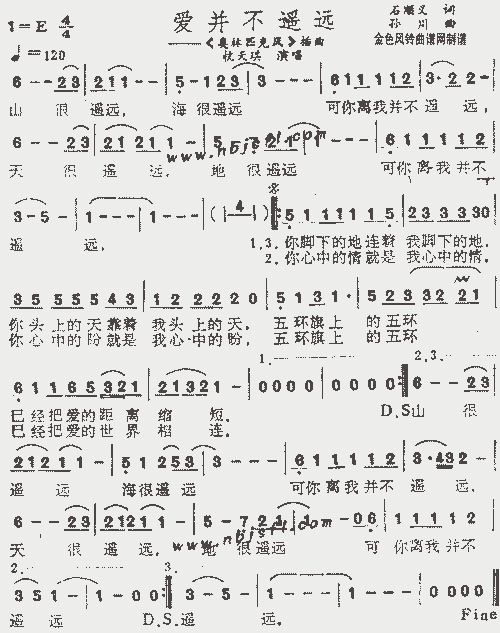 爱并不遥远
石顺义 词
孙川 曲
1=E 4/4
——《奥林匹克风》插曲
金色风铃曲谱网制谱
♩=120
杭天琪 演唱
6 - - 23 | 211 - - | 5 - 123 | 3 - - - | 611112 | 3·22 -
山 很 遥远, 海很遥远 可你离我并不 遥 远,
6 - - 23 | 21211 -
天 很 遥 远, 地 很遥远 可你离我并不
www.nbjstl.com
3 - 5 - | 1 - - - | 1 - - - | ( | 4 | ) 51 1115 | 2333330
遥 远, 1.3.你脚下的地连着 我脚下的地,
2.你心中的情就是 我心中的情,
35 55543 | 12 22220 | 5131· | 5233221
你头上的天靠着 我头上的天, 五环旗上 的五环
你心中的盼就是 我心中的盼, 五环旗上 的五环
1. 2,3.
61165321 | 213211 - | 0000 | 0000 | 6 - - 23
已经把爱的距离缩 短, D.S山 很
已经把爱的世界相 连,
21211 - | 51253 | 3 - - - | 611112 | 3·432 -
遥 远 海很遥远 可你离我并不 遥 远,
6 - - 23 | 21211 - | 5 - 7 2 1 | 1 - 06 | 111112
天 很 遥 远, 地 很遥远 可 你离我并不
www.nbjstl.com
2. 3.
3511 - | 1 - 00 | 3 - 5 - | 1 - - - | 1 - - - | 0000
遥 远 D.S.遥 远. Fine